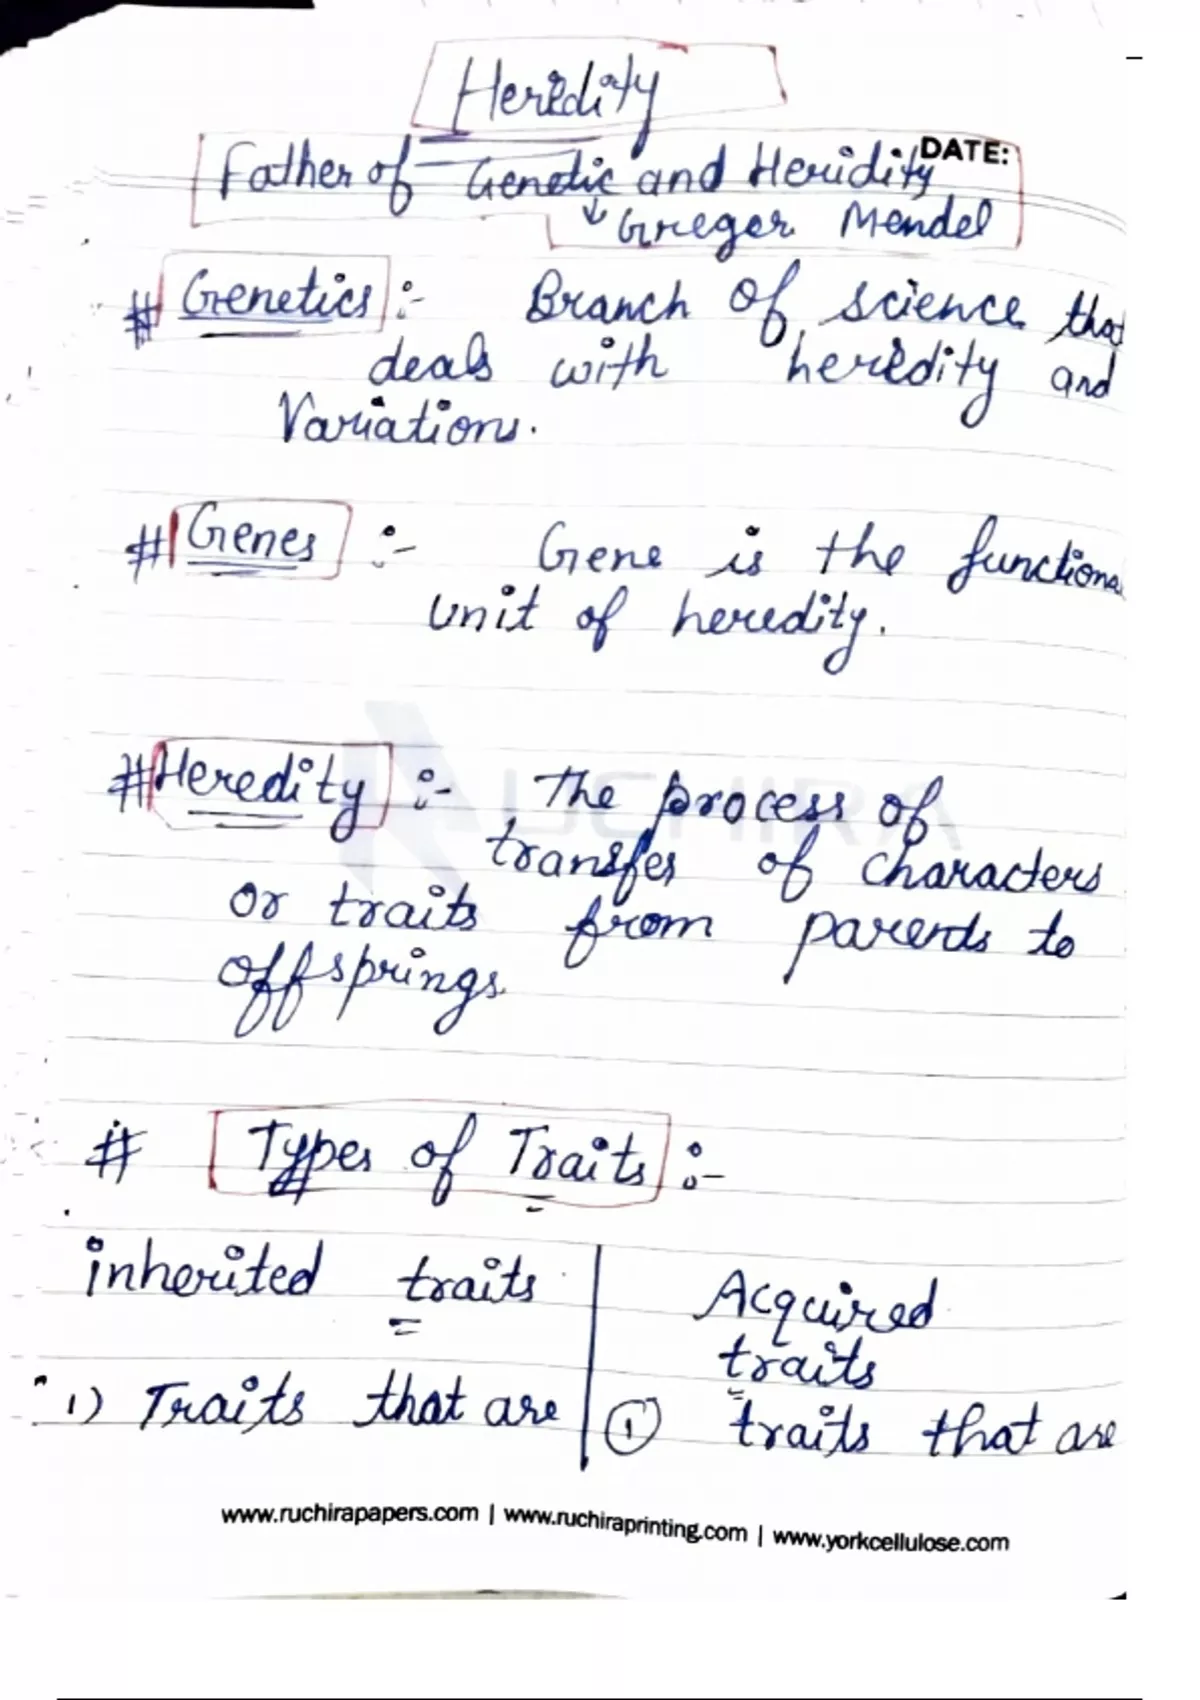 Heridity
DATE:
Father of Genetic and Heridity
Greger Mendel
# Genetics :- Branch of science that
deals with heredity and
Variations.
# Genes :- Gene is the functional
unit of heredity.
RUCHIRA
# Heredity :- The process of
transfer of characters
or traits from parents to
offsprings.
# Types of Traits :-
inherited traits
Acquired
traits
1) Traits that are
1 traits that are
www.ruchirapapers.com | www.ruchiraprinting.com | www.yorkcellulose.com